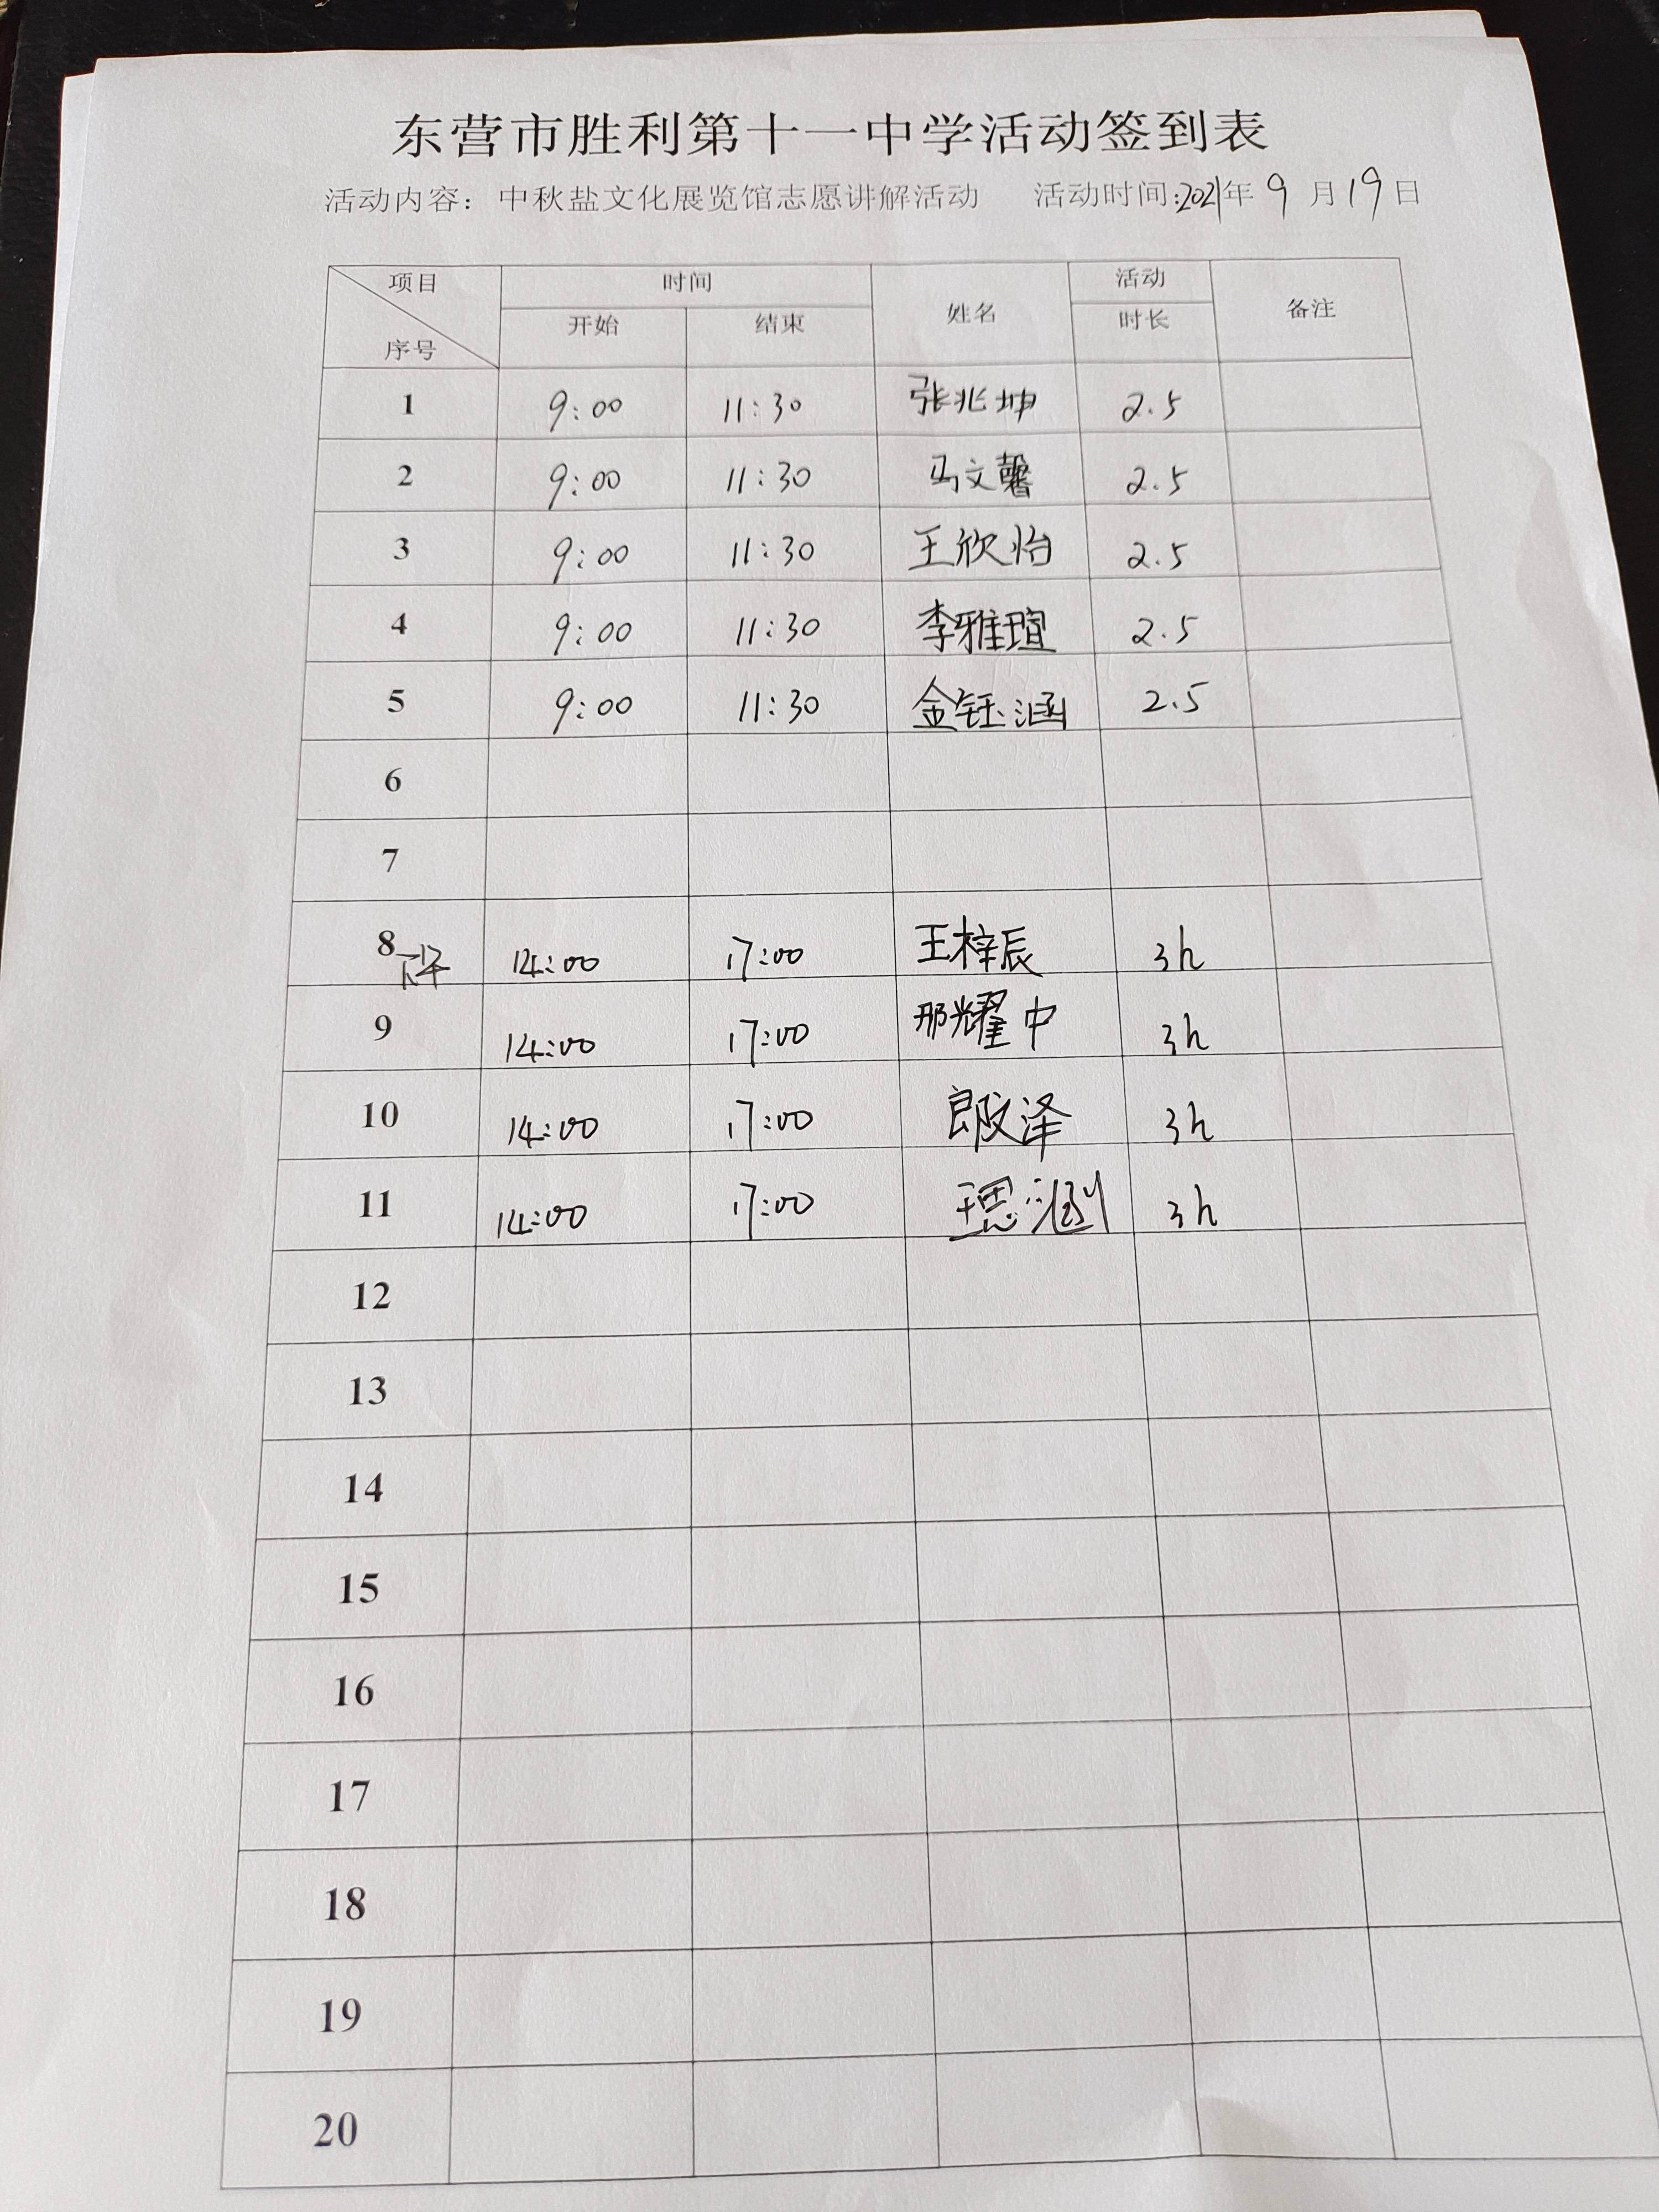 东营市胜利第十一中学活动签到表
活动内容：中秋盐文化展览馆志愿讲解活动 活动时间:2021年 9 月 19 日
项目 时间 姓名 活动 备注
序号 开始 结束 时长
1 9:00 11:30 张兆坤 2.5
2 9:00 11:30 马文馨 2.5
3 9:00 11:30 王欣怡 2.5
4 9:00 11:30 李雅瑄 2.5
5 9:00 11:30 金钰涵 2.5
6
7
8 下午 14:00 17:00 王梓辰 3h
9 14:00 17:00 邢耀中 3h
10 14:00 17:00 泽 3h
11 14:00 17:00 王思涵 3h
12
13
14
15
16
17
18
19
20